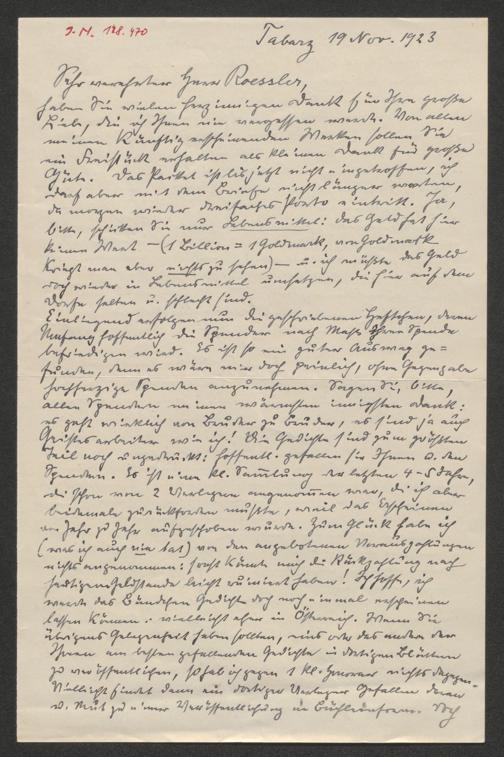 J.N. 128.470
Tabarz 19 Nov. 1923
Sehr verehrter Herr Roessler,
haben Sie vielen herzinnigen Dank für Ihre große
Liebe, die ich Ihnen nie vergessen werde. Von allen
meinen künftig erscheinenden Werken sollen Sie
ein Freistück erhalten als kleinen Dank für große
Güte. Das Paket ist bis jetzt nicht eingetroffen, ich
darf aber mit dem Briefe nicht länger warten,
da morgen wieder dreifaches Porto eintritt. Ja,
bitte, schicken Sie nur Lebensmittel: das Geld hat hier
keinen Wert – (1 Billion = 1 Goldmark, von Goldmark
kriegt man aber nichts zu sehen) – u. ich müßte das Geld
doch wieder in Lebensmittel umsetzen, die hier auf dem
Dorfe selten u. schlecht sind.
Einliegend erfolgen nun die geschriebenen Heftchen, deren
Umfang hoffentlich die Spender nach Maß Ihrer Spende
befriedigen wird. Es ist so ein guter Ausweg ge-
funden, denn es wäre mir doch peinlich, ohne Gegengabe
hochherzige Spenden anzunehmen. Sagen Sie, bitte,
allen Spendern meinen wärmsten innigsten Dank:
es geht wirklich von Bruder zu Bruder, es sind ja auch
Geistesarbeiter wie ich! Die Gedichte sind zum größten
Teil noch ungedruckt: hoffentl. gefallen sie Ihnen u. den
Spendern. Es ist eine kl. Sammlung der letzten 4-5 Jahre,
die schon von 2 Verlegern angenommen war, die ich aber
beidemale zurückfordern mußte, weil das Erscheinen
von Jahr zu Jahr aufgeschoben wurde. Zum Glück habe ich
(was ich auch nie tat) von den angebotenen Vorauszahlungen
nichts angenommen: sonst könnte mich die Rückzahlung nach
heutigem Geldstande leicht ruiniert haben! Ich hoffe, ich
werde das Bändchen Gedichte doch noch einmal erscheinen
lassen können: vielleicht eher in Österreich. Wenn Sie
übrigens Gelegenheit haben sollten, eins oder das andere der
Ihnen am besten gefallenden Gedichte in dortigen Blättern
zu veröffentlichen, so hab ich gegen 1 kl. Honorar nichts dagegen.
Vielleicht findet dann ein dortiger Verleger Gefallen daran
u. Mut zu einer Veröffentlichung in Büchleinform. Doch